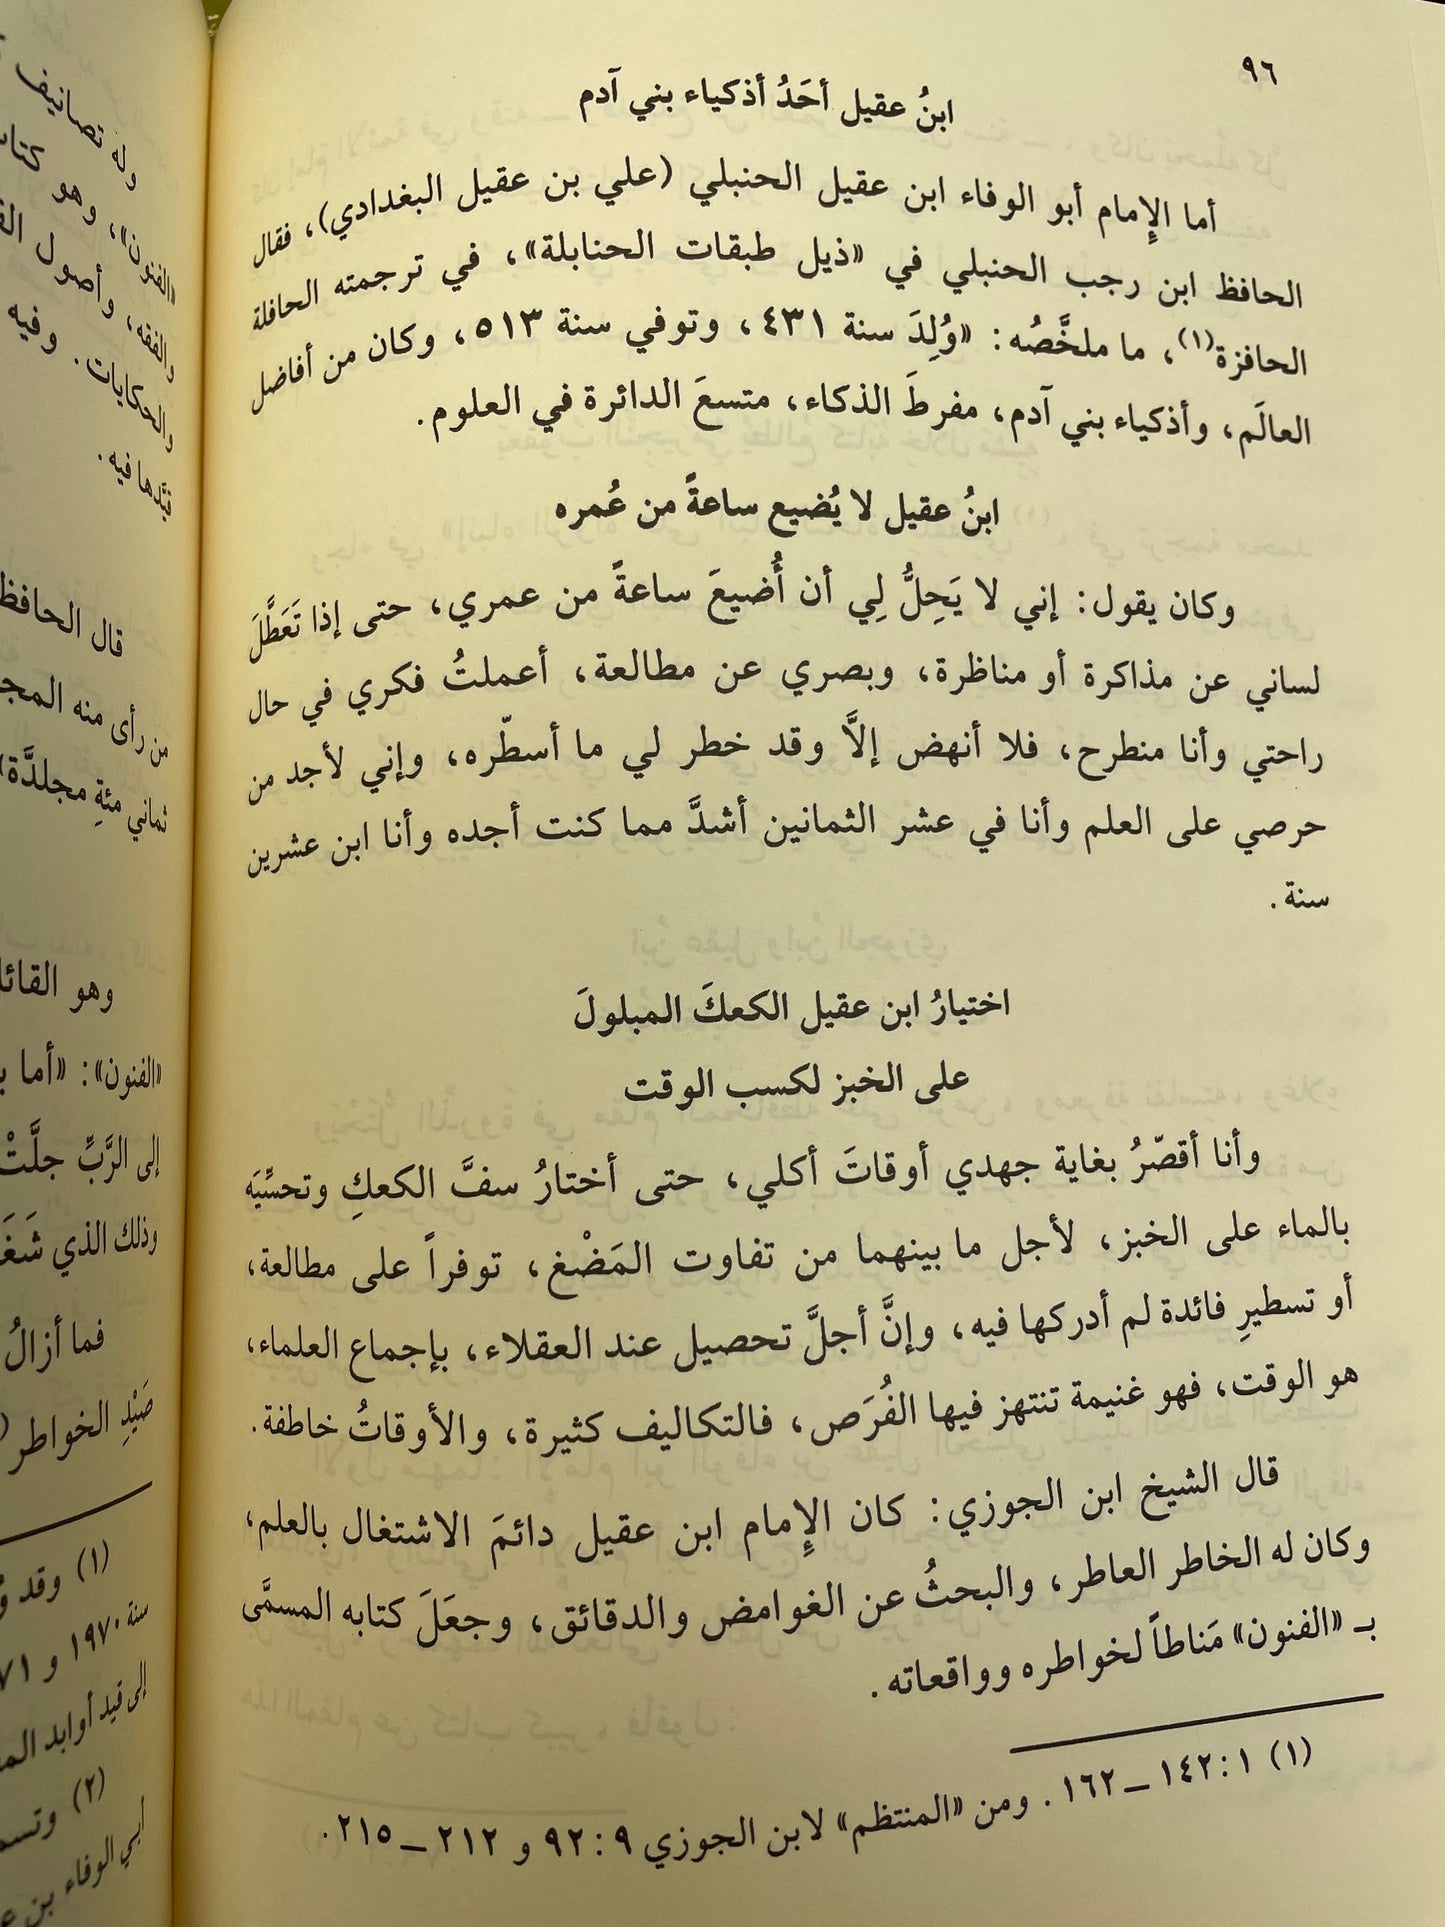 ٩٦
ابنُ عقيل أحَدُ أذكياء بني آدم
أما الإِمام أبو الوفاء ابن عقيل الحنبلي (علي بن عقيل البغدادي)، فقال
الحافظ ابن رجب الحنبلي في «ذيل طبقات الحنابلة»، في ترجمته الحافلة
الحافزة(١)، ما ملخَّصُه: «وُلِدَ سنة ٤٣١، وتوفي سنة ٥١٣، وكان من أفاضل
العالَم، وأذكياء بني آدم، مفرطَ الذكاء، متسعَ الدائرة في العلوم.
ابنُ عقيل لا يُضيع ساعةً من عُمره
وكان يقول: إني لا يَحِلُّ لِي أن أُضيعَ ساعةً من عمري، حتى إذا تَعَطَّلَ
لساني عن مذاكرة أو مناظرة، وبصري عن مطالعة، أعملتُ فكري في حال
راحتي وأنا منطرح، فلا أنهض إلاَّ وقد خطر لي ما أسطّره، وإني لأجد من
حرصي على العلم وأنا في عشر الثمانين أشدَّ مما كنت أجده وأنا ابن عشرين
سنة.
اختيارُ ابن عقيل الكعكَ المبلولَ
على الخبز لكسب الوقت
وأنا أقصّرُ بغاية جهدي أوقاتَ أكلي، حتى أختارُ سفَّ الكعكِ وتحسِّيَه
بالماء على الخبز، لأجل ما بينهما من تفاوت المَضْغ، توفراً على مطالعة،
أو تسطيرِ فائدة لم أدركها فيه، وإنَّ أجلَّ تحصيل عند العقلاء، بإجماع العلماء،
هو الوقت، فهو غنيمة تنتهز فيها الفُرَص، فالتكاليف كثيرة، والأوقاتُ خاطفة.
قال الشيخ ابن الجوزي: كان الإِمام ابن عقيل دائمَ الاشتغال بالعلم،
وكان له الخاطر العاطر، والبحثُ عن الغوامض والدقائق، وجعَلَ كتابه المسمَّى
بـ «الفنون» مَناطاً لخواطره وواقعاته.
(١) ١:١٤٢ ــ ١٦٢. ومن «المنتظم» لابن الجوزي ٩:٩٢ و ٢١٢ ــ ٢١٥.
وله تصانيف
«الفنون»، وهو
والفقه، وأصول
والحكايات. وفيه
قيَّدها فيه.
قال الحافظ
من رأى منه
ثماني مئةِ مجلدَّة
وهو
«الفنون»: «أما
إلى الرَّبِّ جلَّتْ
وذلك الذي
فما أزالُ
صَيْدِ الخواطر
(١) وقد
سنة ١٩٧٠ و
إلى قيد أوابد
(٢)
أبي الوفاء بن